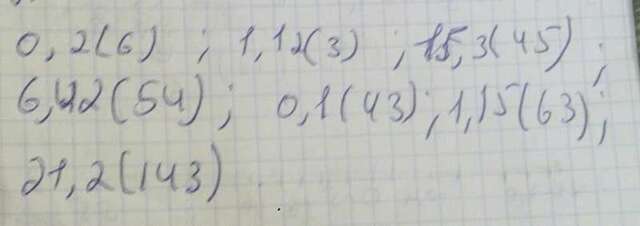 0,2(6) ; 1,12(3) ; 15,3(45) ;
6,422(54) ; 0,1(43) ; 1,15(63) ;
21,2(143)